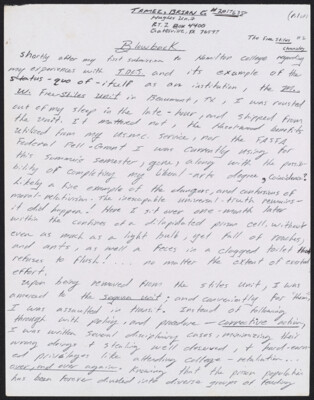 BRIAN E.
Hughes Unit
RT. 2 BOX 4400
Gatesville, TX 76597
Blowback
shortly after my first submission to Hamilton college regarding
my experiences with TDCJ and its example of the
status-quo of itself as an institution, the
Stiles Unit in Beaumont, TX, I was rousted
out of my sleep in the late-hour, and shipped from
the Unit. It mattered not, the thousand benefits
utilized from my service, nor the FAFSA
Federal Pell-Grant I was currently using for
this summer's semester; gone, along with the possi-
bility of completing my liberal-arts degree, coincidence?
Likely a fine example of the dangers, and contusions of
moral relativism. The inescapable universal-truth remains—
it did happen! Here I sit over one-month later
within the confines of a dilapidated prison cell without
even as much as a light bulb, yet full of roaches,
and ants, as well a feces in a clogged toilet that
refuses to flush!... no matter the extent of exerted
effort.
Upon being removed from the stiles unit, I was
unit, and conveniently for them,
I was assaulted in transit. Instead of following
through with policy, and procedure — corrective action,
I was written several disciplinary cases,
wrong doings & stealing well deserved, & hard-earn-
ed privileges like attending college-
over, and over again. Knowing that the prison population
has been forever divided into diverse groups of